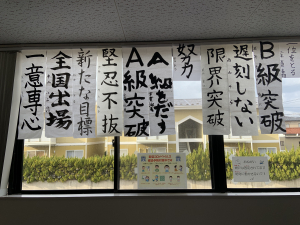 B級突破
遅刻しない
限界突破
努力
A級をだす
A級突破
堅忍不抜
新たな目標
全国出場
一意専心